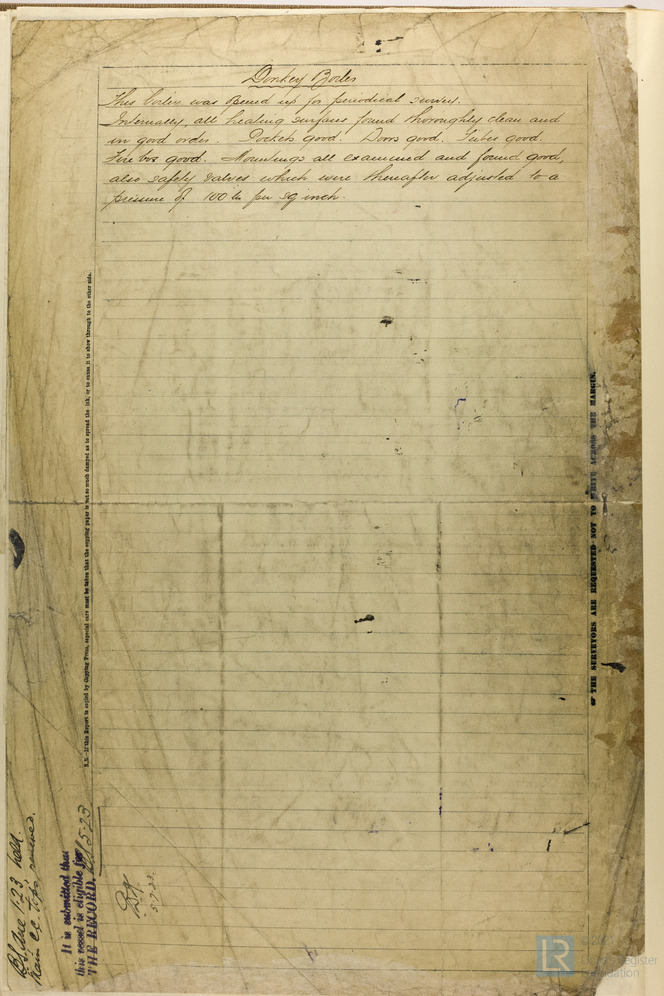 Donkey Boiler
This boiler was opened up for periodical survey.
Internally, all heating surfaces found thoroughly clean and
in good order. Sockets good. Doors good. Tubes good.
Fire box good. Mountings all examined and found good,
also safety valves which were thereafter adjusted to a
pressure of 100 lbs per sq inch.
N.B.—If this Report is copied by Copying Press, especial care must be taken that the copying paper is not so much damped as to spread the ink, or to cause it to show through to the other side.
THE SURVEYORS ARE REQUESTED NOT TO WRITE ACROSS THE MARGIN.
It is submitted that
this vessel is eligible for
THE RECORD. 5.23
5.7.23.
1.23 held.
renewed.
LR
Register
Foundation